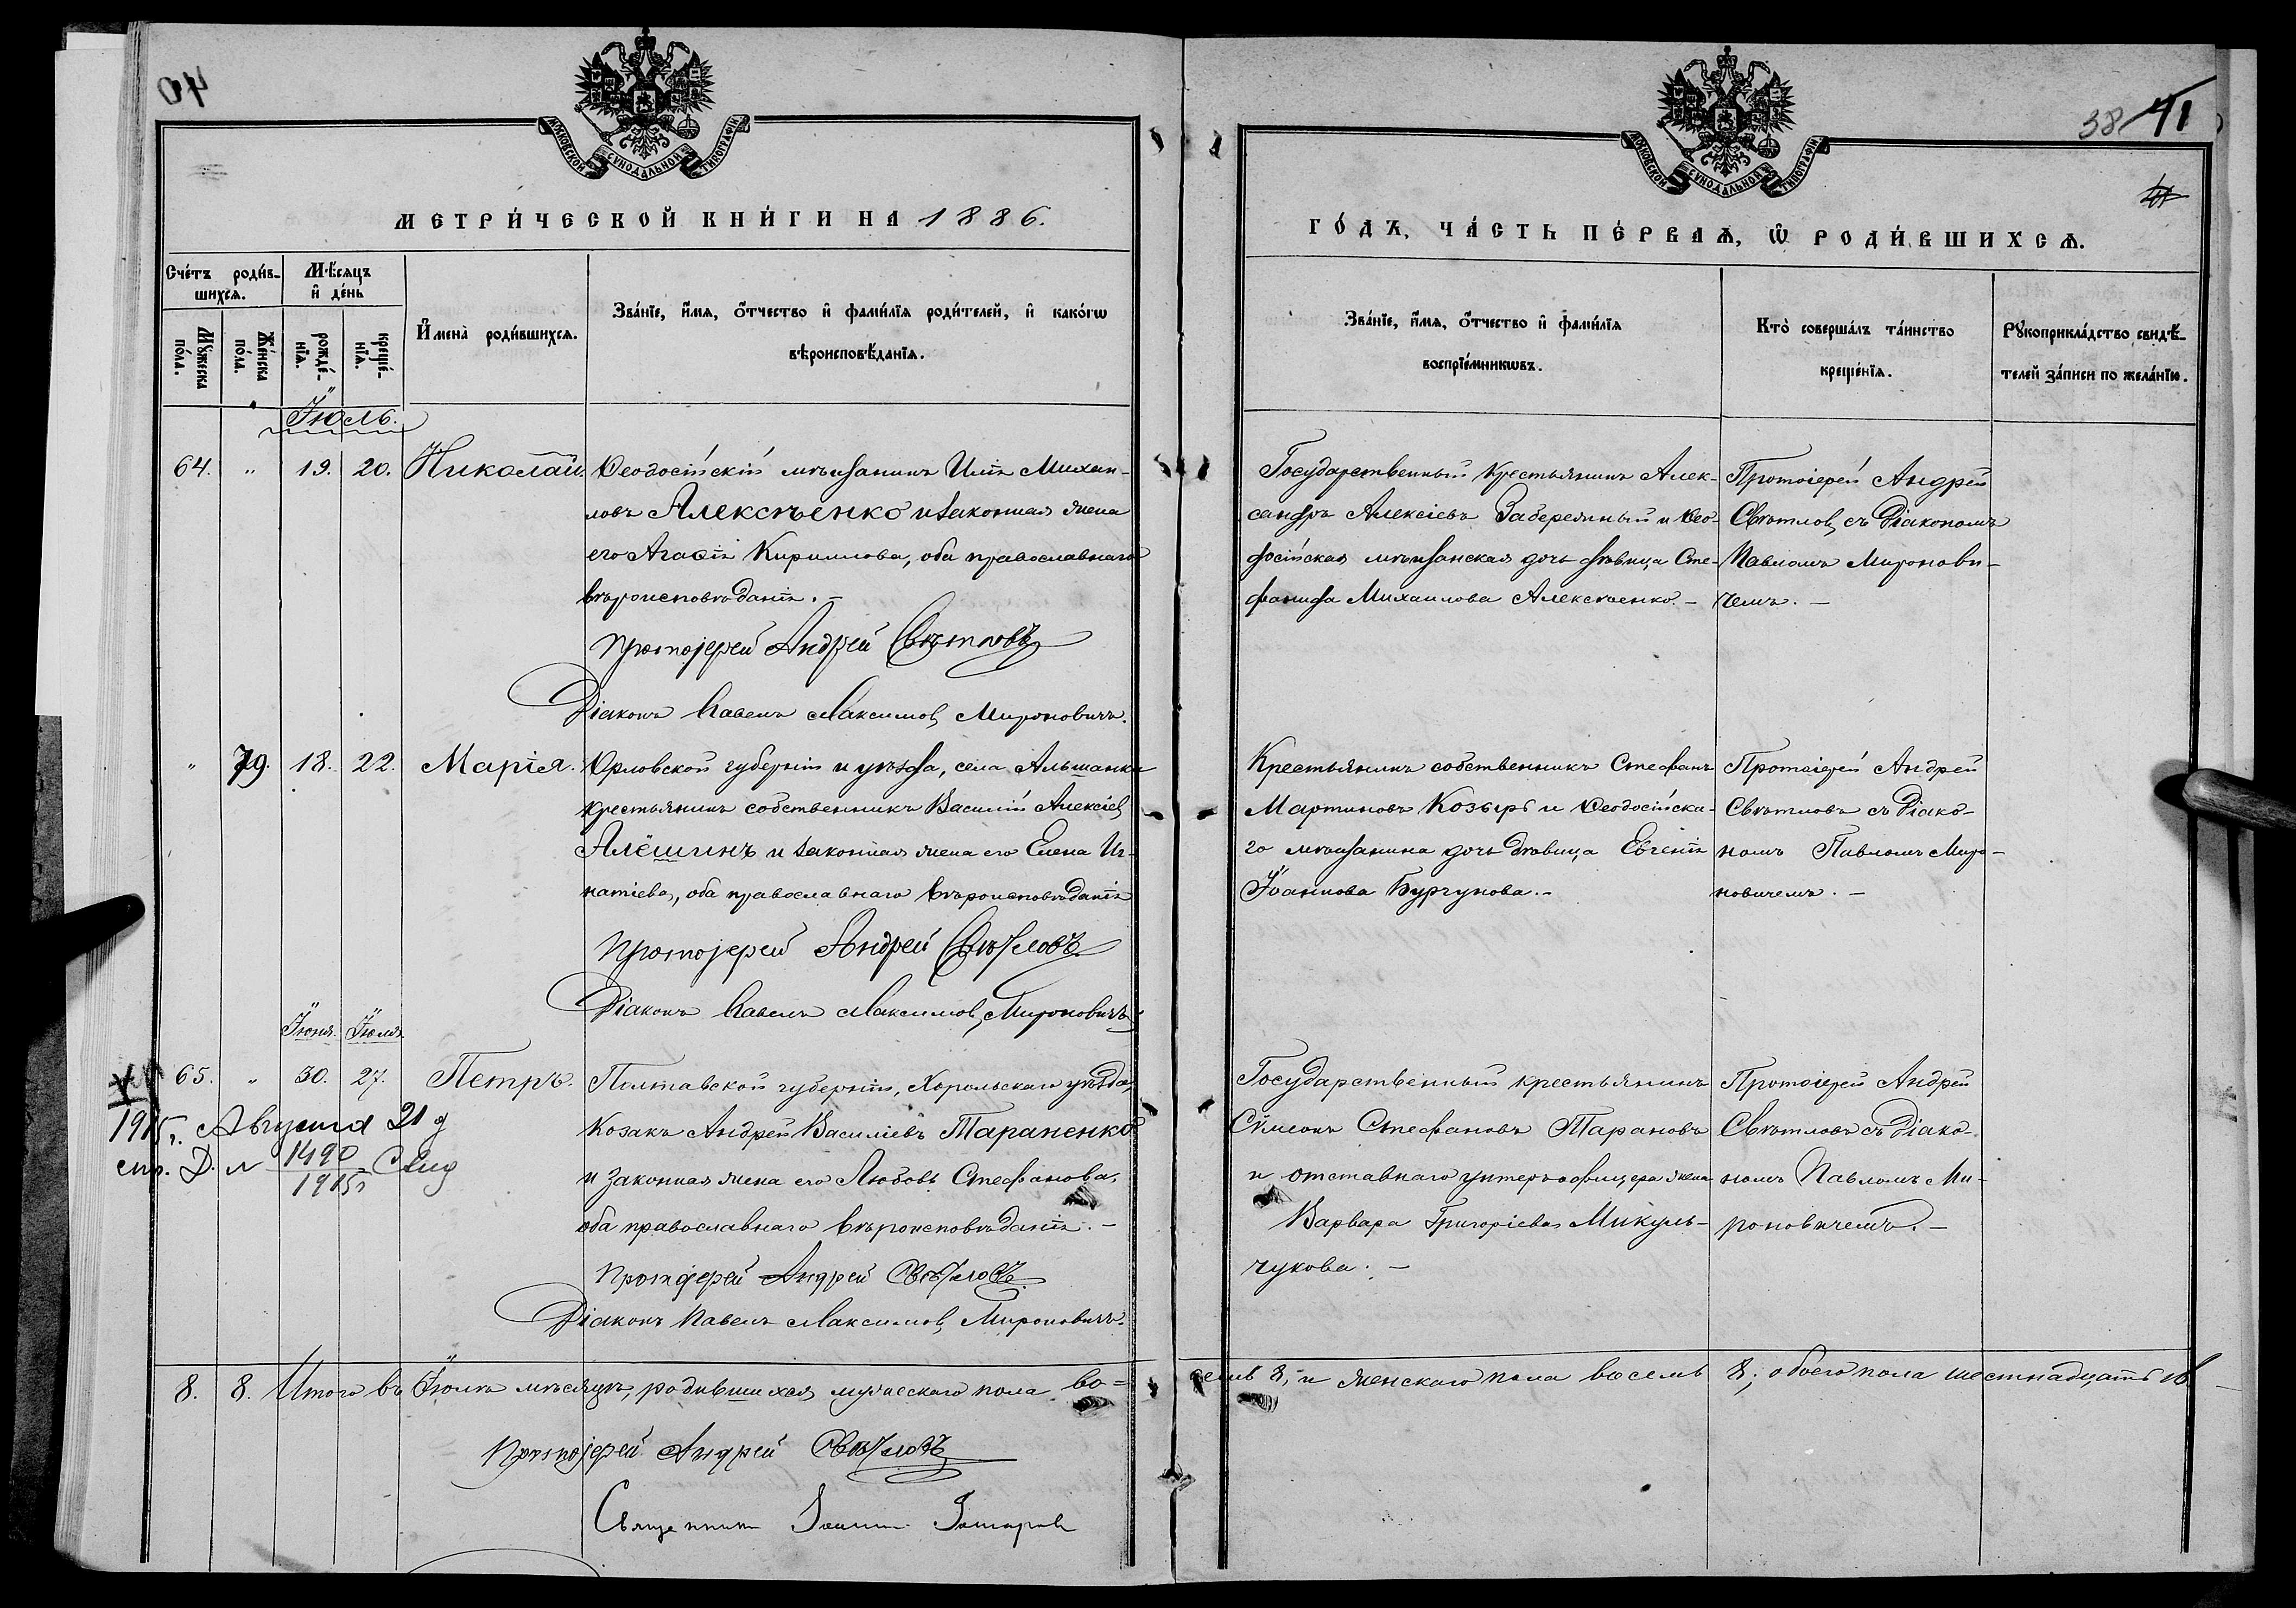 40
МЕТРИ́ЧЕСКОЙ КНИ́ГИ НА 1886.
Сче́тъ роди́в-
шихсѧ.
Мѣ́сяцъ
и҆ де́нь
Мꙋ́жеска
по́ла.
Же́нска
по́ла.
рожде́-
нїѧ.
креще́-
нїѧ.
И҆мена̀ роди́вшихсѧ.
Зва́нїе, и҆́мѧ, ѻ҆́тчество и҆ фами́лїѧ роди́телей, и҆ како́гѡ
вѣроисповѣ́данїѧ.
Іюль.
64. " 19. 20. Николай. Ѳеодосійскій мѣщанинъ Илія Михаи-
ловъ Алексѣенко и законная жена
его Агаѳія Кириллова, оба православнаго
вѣроисповѣданія. –
Протоіерей Андрей Свѣтловъ
Діаконъ Павелъ Максимов. Мироновичъ.
" 79. 18. 22. Марія. Орловской губерніи и уѣзда, села Альшанки
крестьянинъ собственникъ Василій Алексіев.
Алёшинъ и законная жена его Елена Иг-
натіева, оба православнаго вѣроисповѣданія
Протоіерей Андрей Свѣтловъ
Діаконъ Павелъ Максимов. Мироновичъ
Іюня. Іюля.
65. " 30. 27. Петръ. Полтавской губерніи, Хорольскаго уѣзда,
Козакъ Андрей Василіевъ Тараненко
и законная жена его Любовь Стефанова,
оба православнаго вѣроисповѣданія. –
Протоіерей Андрей Свѣтловъ
Діаконъ Павелъ Максимов. Мироновичъ.
1915 г. Августа 21 д
спр. Д. №1490/1915
8. 8. Итого въ Іюлѣ мѣсяцѣ, родившихся мужескаго пола во=
Протоіерей Андрей Свѣтловъ
Священникъ Іоаннъ
МОСКОВСКОЙ СѴНОДАЛЬНОЙ ТИПОГРАФІИ
38 41
ГО́ДЪ, ЧА́СТЬ ПЕ́РВАѦ, Ѽ РОДИ́ВШИХСѦ.
Зва́нїе, и҆́мѧ, ѻ҆́тчество и҆ фами́лїѧ
воспрїе́мникѡвъ.
Кто̀ соверша́лъ та́инство
креще́нїѧ.
Рꙋкоприкла́дство свидѣ́-
телей за́писи по жела́нїю.
Государственный крестьянинъ Алек-
сандръ Алексіевъ Забережный и Ѳео-
досійская мѣщанская дочь дѣвица Сте-
фанида Михаилова Алексѣенко. –
Протоіерей Андрей
Свѣтлов. съ Діакономъ
Павломъ Миронови-
чемъ. –
Крестьянинъ собственникъ Стефанъ
Мартиновъ Козырь и Ѳеодосійска-
го мѣщанина дочь дѣвица Евгенія
Іоаннова Бургунова. –
Протоіерей Андрей
Свѣтловъ съ Діако-
номъ Павломъ Миро-
новичемъ. –
Государственный крестьянинъ
Сѵмеонъ Стефановъ Тарановъ
и отставнаго унтеръ-офицера жена
Варвара Григоріева Микуль-
чукова. –
Протоіерей Андрей
Свѣтловъ съ Діако-
номъ Павломъ Ми-
роновичемъ. –
семь 8; и женскаго пола восемь 8; обоего пола шестнадцать 16
МОСКОВСКОЙ СѴНОДАЛЬНОЙ ТИПОГРАФІИ